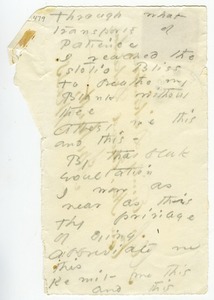 479
Through what
transports of
Patience
I reached the
stolid Bliss
To breathe my
Blank without
thee
Attest me this
and this -
By that bleak
exultation
I won as
near as this
Thy privilege
of dying.
Abbreviate me
this
Remit me this
and this